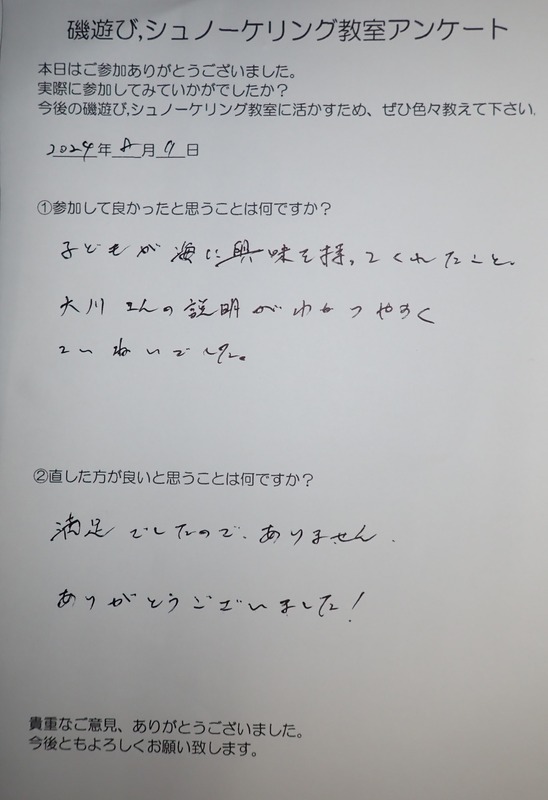 磯遊び,シュノーケリング教室アンケート
本日はご参加ありがとうございました。
実際に参加してみていかがでしたか?
今後の磯遊び,シュノーケリング教室に活かすため、ぜひ色々教えて下さい。
2024年8月9日
①参加して良かったと思うことは何ですか?
子どもが海に興味を持ってくれたこと。
大川さんの説明がわかりやすく
ていねいでした。
②直した方が良いと思うことは何ですか?
満足でしたので、ありません.
ありがとうございました!
貴重なご意見、ありがとうございました。
今後ともよろしくお願い致します。